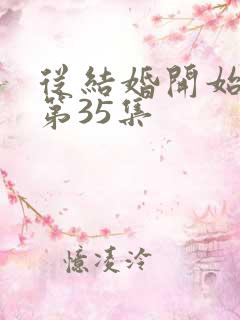 從結婚開始
第35集
憶凌泠